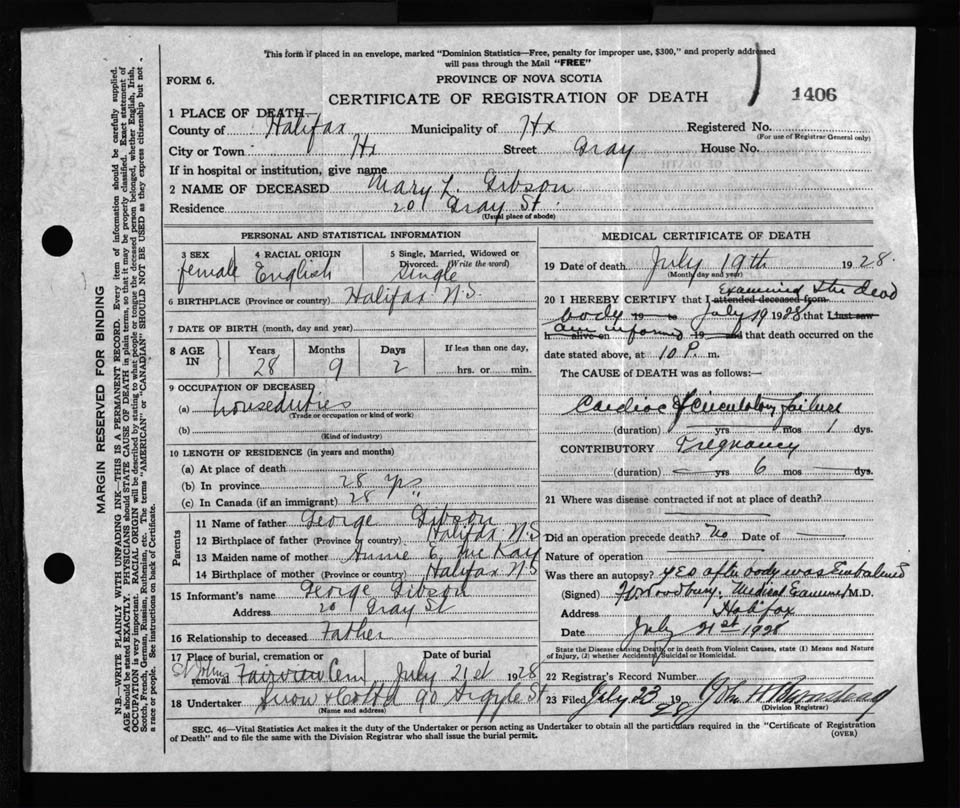 This form if placed in an envelope, marked "Dominion Statistics—Free, penalty for improper use, $300," and properly addressed
will pass through the Mail "FREE"
FORM 6.
PROVINCE OF NOVA SCOTIA
CERTIFICATE OF REGISTRATION OF DEATH
1406
1 PLACE OF DEATH—
County of Halifax Municipality of Hx Registered No.
(For use of Registrar General only)
City or Town Hx Street Gray House No.
If in hospital or institution, give name
2 NAME OF DECEASED Mary L. Gibson
Residence 20 Gray St.
(Usual place of abode)
PERSONAL AND STATISTICAL INFORMATION
3 SEX 4 RACIAL ORIGIN 5 Single, Married, Widowed or
Divorced. (Write the word)
female English Single
6 BIRTHPLACE (Province or country) Halifax N.S.
7 DATE OF BIRTH (month, day and year)
8 AGE IN Years Months Days If less than one day,
28 9 2 hrs. or min.
9 OCCUPATION OF DECEASED
(a) housduties
(Trade or occupation or kind of work)
(b)
(Kind of industry)
10 LENGTH OF RESIDENCE (in years and months)
(a) At place of death
(b) In province 28 yrs
(c) In Canada (if an immigrant) 28 "
Parents
11 Name of father George Gibson
12 Birthplace of father (Province or country) Halifax N.S
13 Maiden name of mother Annie McKay
14 Birthplace of mother (Province or country) Halifax N.S
15 Informant's name George Gibson
Address 20 Gray St
16 Relationship to deceased Father
17 Place of burial, cremation or Date of burial
removal St Johns Fairview Cem July 21st 1928
18 Undertaker Snow & Co Ltd 90 Argyle St
(Name and address)
MEDICAL CERTIFICATE OF DEATH
19 Date of death July 19th 1928.
(Month, day and year)
Examined the dead
20 I HEREBY CERTIFY that I attended deceased from
body 19 to July 19 1928 that I last saw
am informed
h alive on 19 and that death occurred on the
date stated above, at 10 P. m.
The CAUSE of DEATH was as follows:—
Cardiac & Circulatory failure
(duration) yrs mos 1 dys.
CONTRIBUTORY Pregnancy
(duration) — yrs 6 mos — dys.
21 Where was disease contracted if not at place of death?
Did an operation precede death? No Date of —
Nature of operation
Was there an autopsy? yes after body was Embalmed
(Signed) Woodbury. Medical Examiner M.D.
Address Halifax
Date July 21st 1928
State the Disease causing Death, or in death from Violent Causes, state (1) Means and Nature
of Injury, (2) whether Accidental, Suicidal or Homicidal.
22 Registrar's Record Number
23 Filed July 23 1928 John H
(Division Registrar)
SEC. 46—Vital Statistics Act makes it the duty of the Undertaker or person acting as Undertaker to obtain all the particulars required in the "Certificate of Registration
of Death" and to file the same with the Division Registrar who shall issue the burial permit.
(OVER)
MARGIN RESERVED FOR BINDING
N.B.—WRITE PLAINLY WITH UNFADING INK—THIS IS A PERMANENT RECORD. Every item of information should be carefully supplied.
AGE should be stated EXACTLY. PHYSICIANS should STATE CAUSE OF DEATH in plain terms, so that it may be properly classified. Exact statement of
OCCUPATION is very important. RACIAL ORIGIN will be described by stating to what people or tongue the deceased person belonged, whether English, Irish,
Scotch, French, German, Russian, Ruthenian, etc. The terms "AMERICAN" or "CANADIAN" SHOULD NOT BE USED as they express citizenship but not
a race or people. See instructions on back of Certificate.